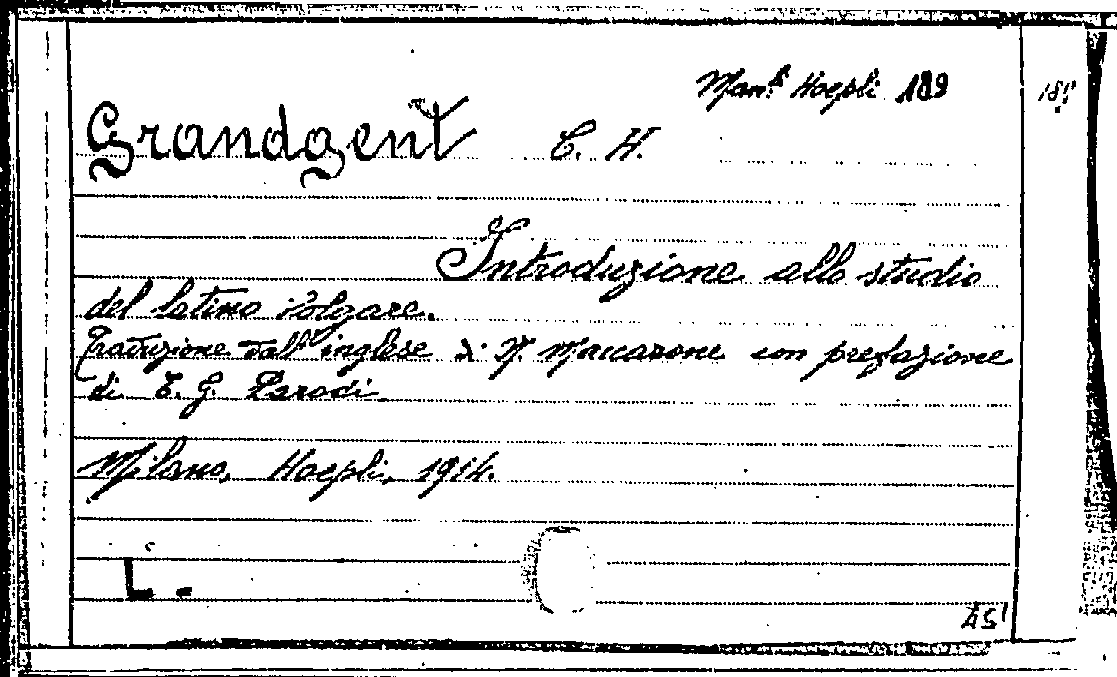 Man.li Hoepli 189
189
Grandgent C. H.
Introduzione allo studio
del latino volgare.
Traduzione dall'inglese di N. Maccarone con prefazione
di E. G. Parodi
Milano, Hoepli, 1914.
L.